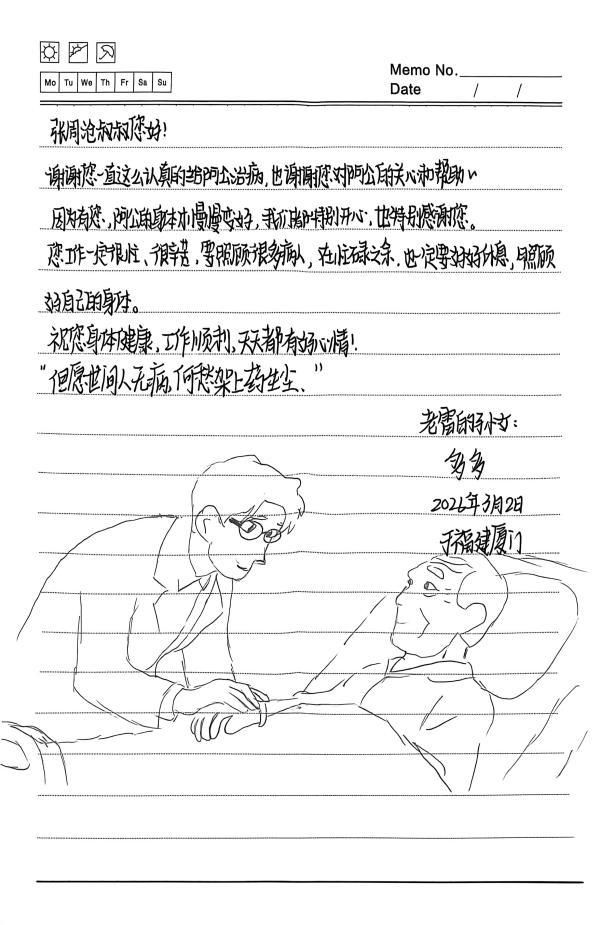 Mo Tu We Th Fr Sa Su
Memo No.
Date / /
张周沧叔叔您好！
谢谢您一直这么认真的给阿公治病，也谢谢您对阿公的关心和帮助～
因为有您，阿公的身体才慢慢变好，我们都特别开心，也特别感谢您。
您工作一定很忙、很辛苦，要照顾很多病人，在忙碌之余，也一定要好好休息，照顾
好自己的身体。
祝您身体健康，工作顺利，天天都有好心情！
“但愿世间人无病，何愁架上药生尘、”
老雷的孙女：
多多
2026年3月2日
于福建厦门